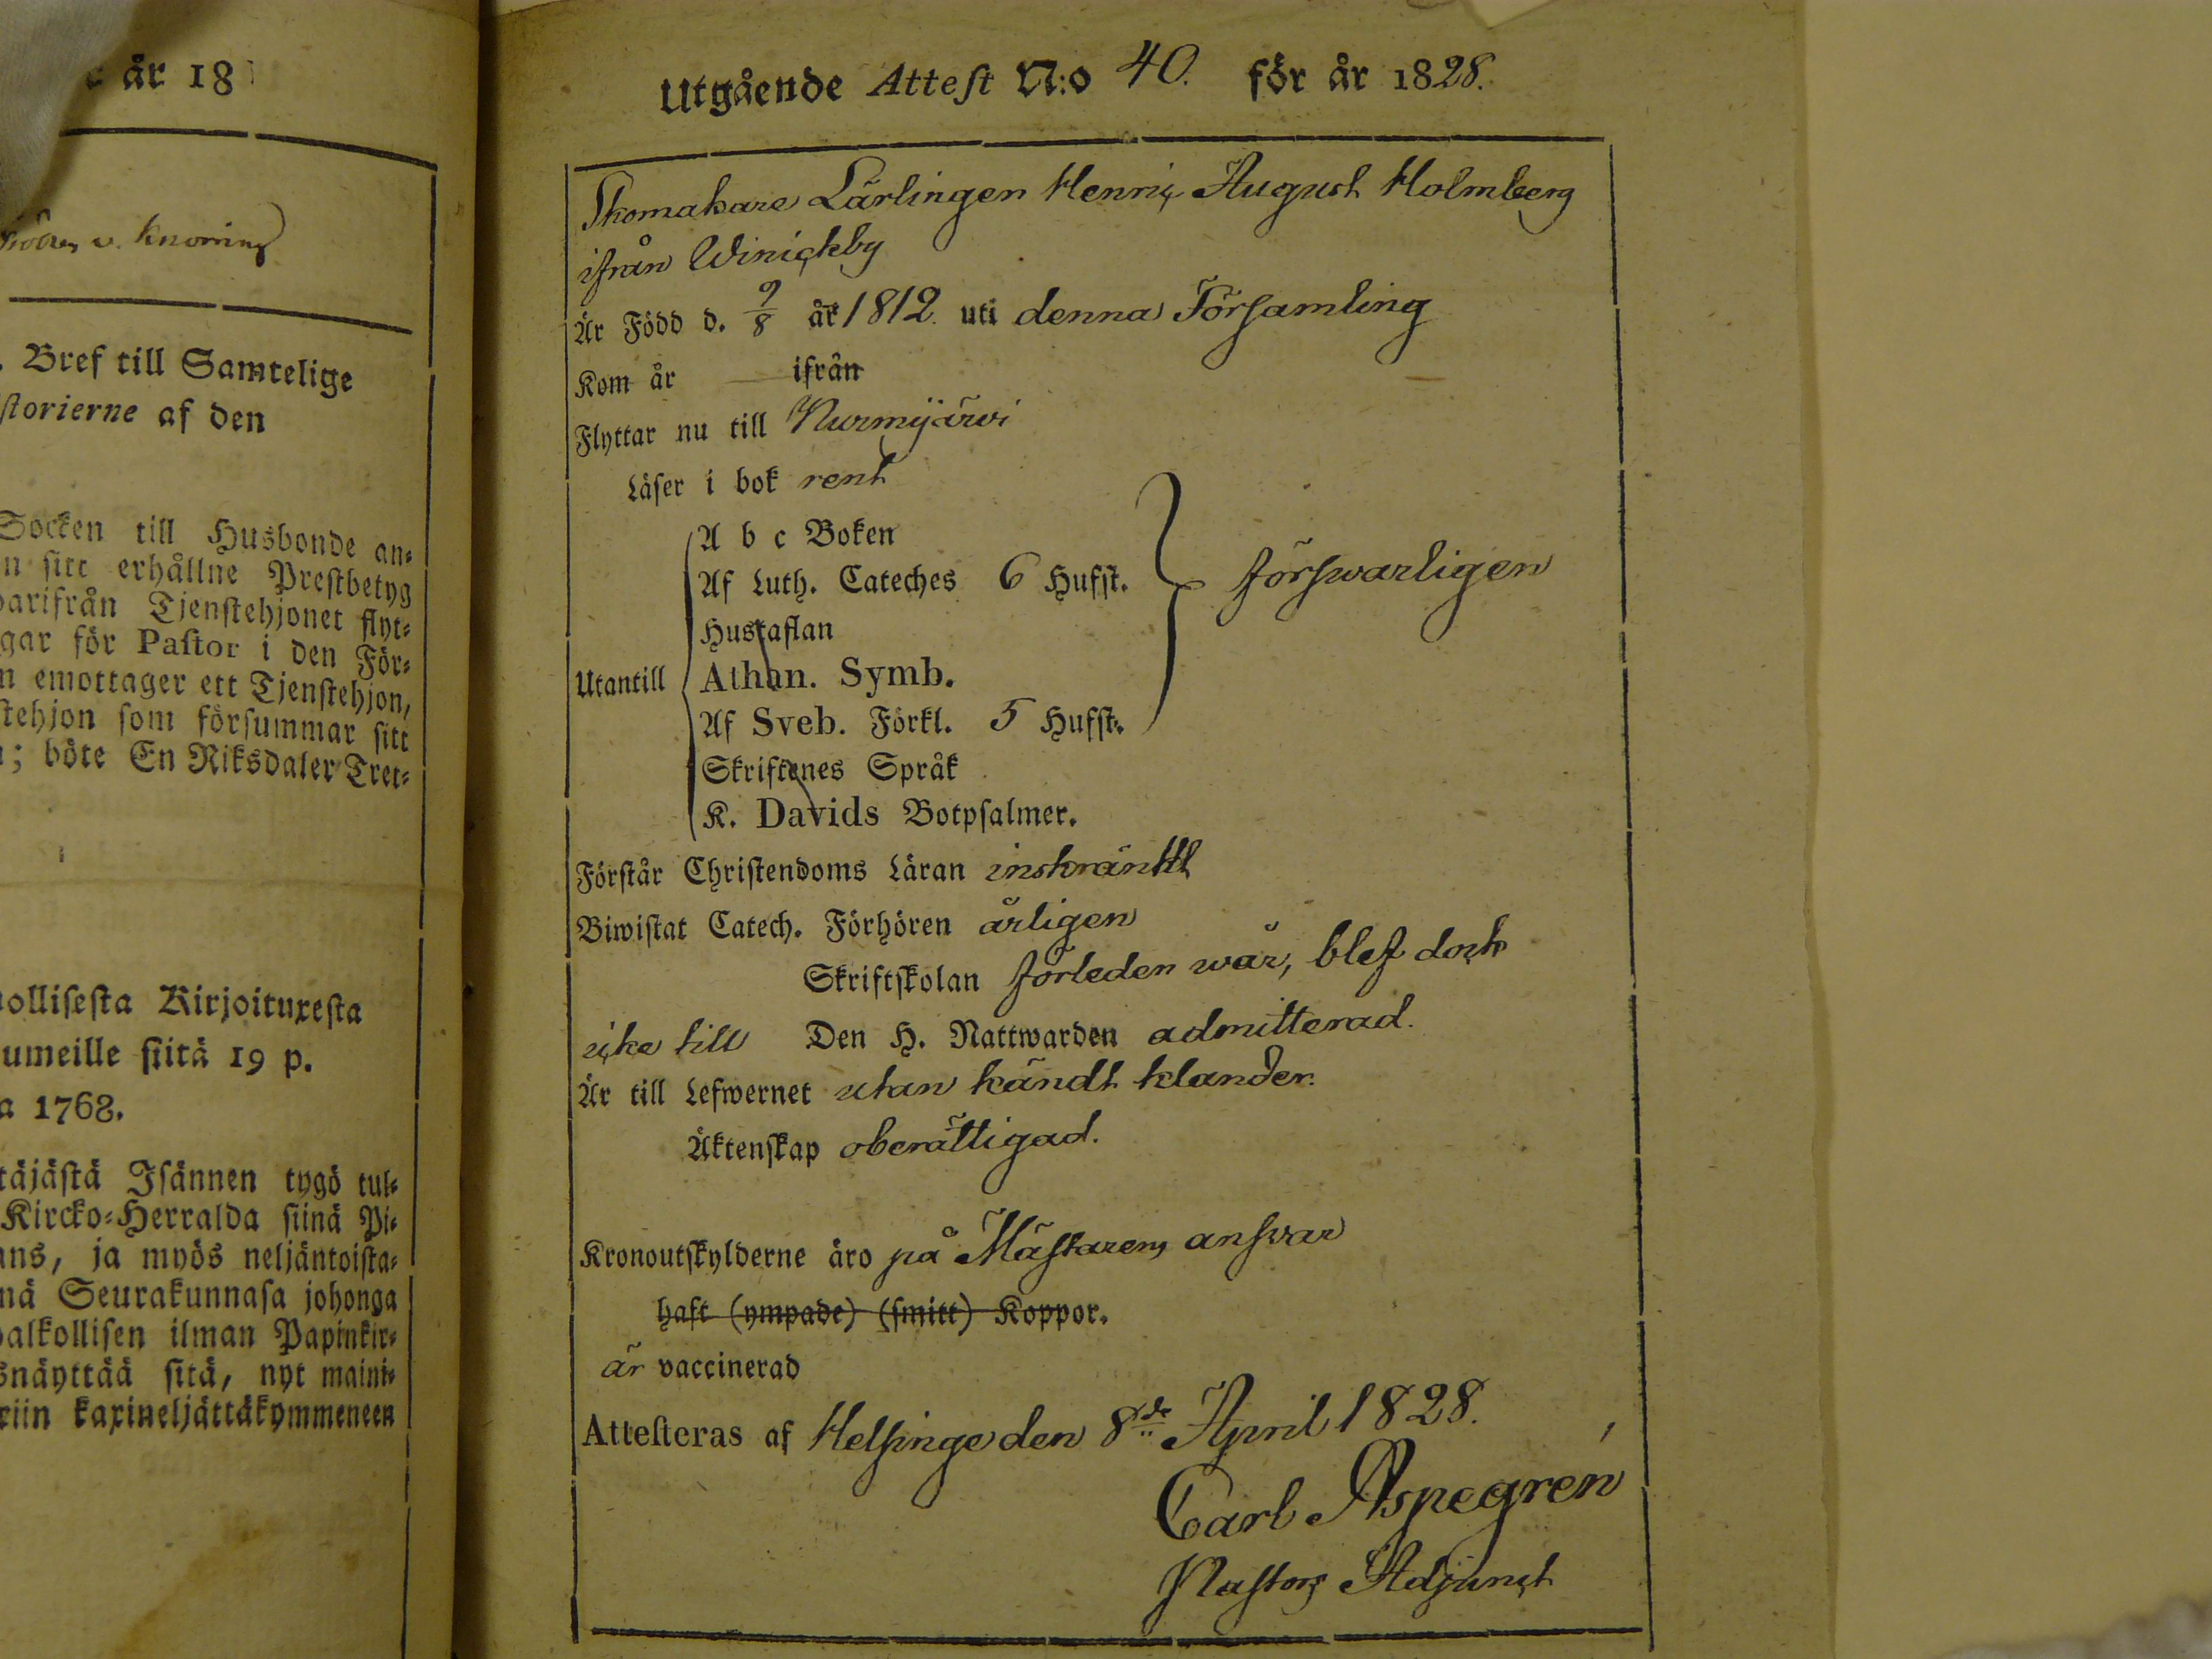 år 18
v. Knorring
. Bref till Samtelige
storierne af den
Socken till Husbonde an-
n sitt erhållne Prestbetyg
darifrån Tjenstehjonet flyt-
gar för Pastor i den För-
n emottager ett Tjenstehjon,
stehjon som försummar sitt
; böte En Riksdaler Tret-
ollisesta Kirjoituxesta
umeille siitä 19 p.
a 1768.
täjästä Isännen tygö tul-
Kircko-Herralda siinä Pi-
ans, ja myös neljäntoista-
nä Seurakunnasa johonga
palkollisen ilman Papinkir-
snäyttää sitä, nyt maini-
riin kaxineljättäkymmeneen
Utgående Attest N:o 40. för år 1828.
Skomakare Lärlingen Henric August Holmberg
ifrån Winickby
Är Född d. 9/8 år 1812. uti denna Församling
Kom år — ifrån
Flyttar nu till Nurmijärvi
Läser i bok rent
A b c Boken
Af Luth. Cateches 6 Hufst. försvarligen
Hustaflan
Utantill Athan. Symb.
Af Sveb. Förkl. 5 Hufst.
Skriftenes Språk
K. Davids Botpsalmer.
Förstår Christendoms Läran inskränkt
Biwistat Catech. Förhören årligen
Skriftskolan förleden wår, blef dock
icke till Den H. Nattwarden admitterad.
Är till Lefwernet utan kändt klander.
Äktenskap oberättigad.
Kronoutskylderne äro på Mästarens ansvar
haft (ympade) (smitt) Koppor.
är vaccinerad
Attesteras af Helsinge den 8de April 1828.
Carl Aspegren
Pastors Adjunct